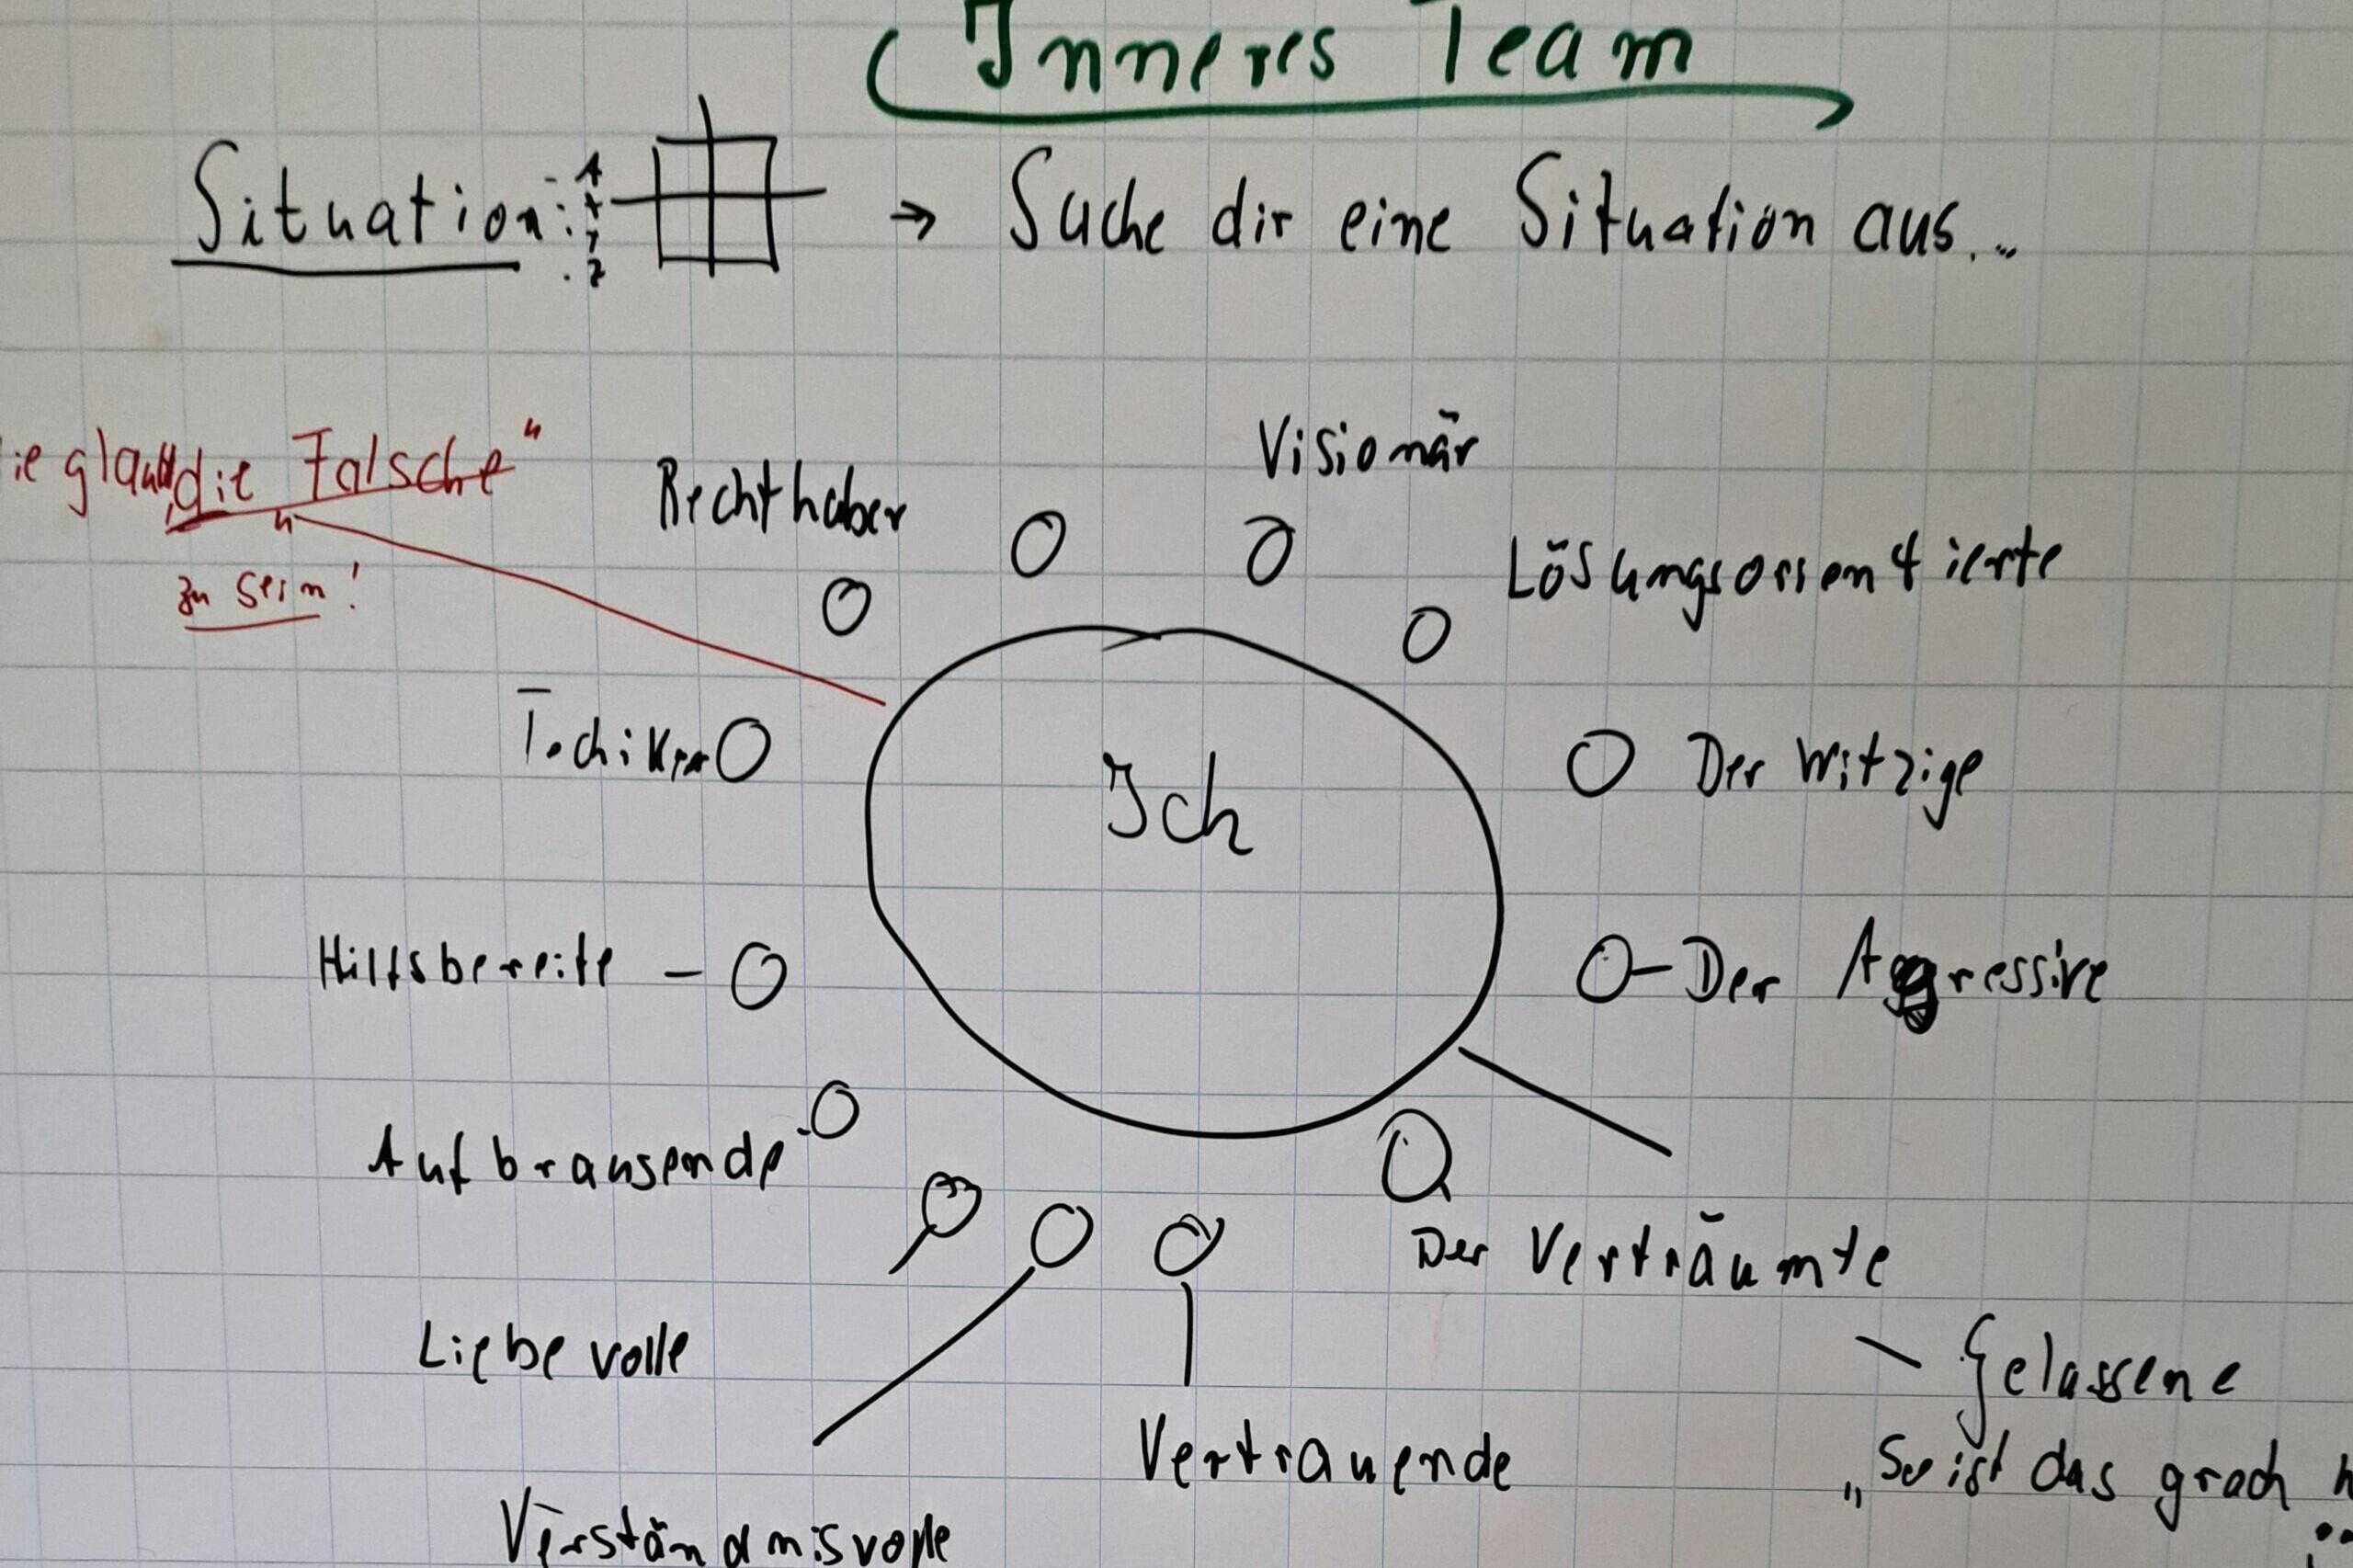 Inneres Team
Situation: → Suche dir eine Situation aus...
Visionär
ie glaubt „die Falsche"
zu sein!
Rechthaber
Lösungsorientierte
Techiker
Ich
Der Witzige
Hilfsbereite -
- Der Aggressive
Aufbrausende
Der Verträumte
Liebevolle
- Gelassene
Vertrauende
„So ist das
Verständnisvolle